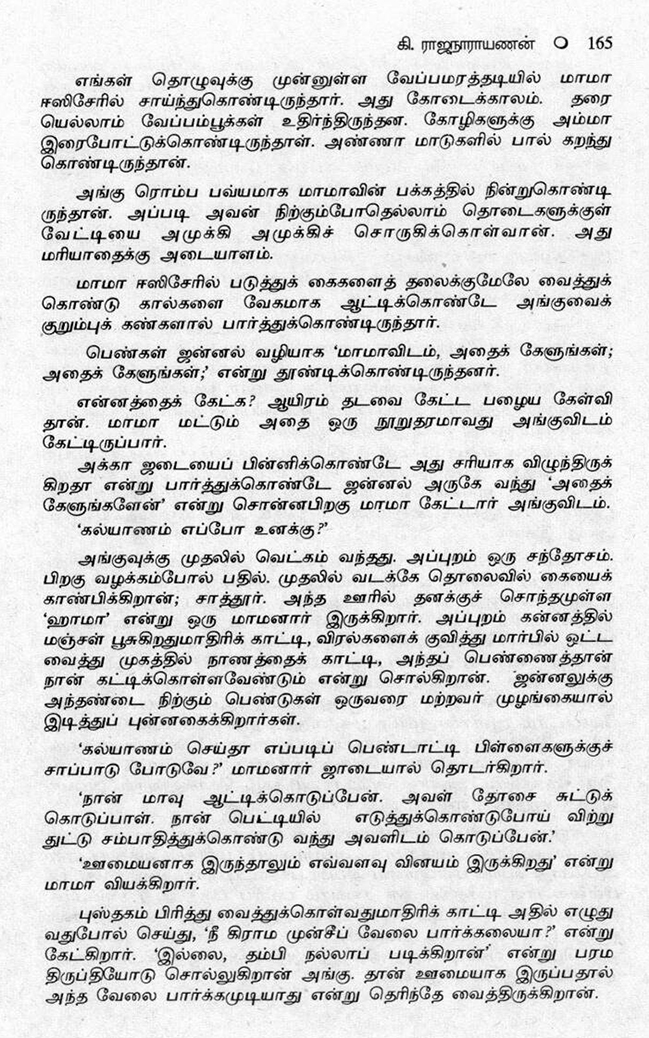 கி. ராஜநாராயணன் O 165
எங்கள் தொழுவுக்கு முன்னுள்ள வேப்பமரத்தடியில் மாமா
ஈஸிசேரில் சாய்ந்துகொண்டிருந்தார். அது கோடைக்காலம். தரை
யெல்லாம் வேப்பம்பூக்கள் உதிர்ந்திருந்தன. கோழிகளுக்கு அம்மா
இரைபோட்டுக்கொண்டிருந்தாள். அண்ணா மாடுகளில் பால் கறந்து
கொண்டிருந்தான்.
அங்கு ரொம்ப பவ்யமாக மாமாவின் பக்கத்தில் நின்றுகொண்டி
ருந்தான். அப்படி அவன் நிற்கும்போதெல்லாம் தொடைகளுக்குள்
வேட்டியை அமுக்கி அமுக்கிச் சொருகிக்கொள்வான். அது
மரியாதைக்கு அடையாளம்.
மாமா ஈஸிசேரில் படுத்துக் கைகளைத் தலைக்குமேலே வைத்துக்
கொண்டு கால்களை வேகமாக ஆட்டிக்கொண்டே அங்குவைக்
குறும்புக் கண்களால் பார்த்துக்கொண்டிருந்தார்.
பெண்கள் ஜன்னல் வழியாக ‘மாமாவிடம், அதைக் கேளுங்கள்;
அதைக் கேளுங்கள்;’ என்று தூண்டிக்கொண்டிருந்தனர்.
என்னத்தைக் கேட்க? ஆயிரம் தடவை கேட்ட பழைய கேள்வி
தான். மாமா மட்டும் அதை ஒரு நூறுதரமாவது அங்குவிடம்
கேட்டிருப்பார்.
அக்கா ஜடையைப் பின்னிக்கொண்டே அது சரியாக விழுந்திருக்
கிறதா என்று பார்த்துக்கொண்டே ஜன்னல் அருகே வந்து ‘அதைக்
கேளுங்களேன்’ என்று சொன்னபிறகு மாமா கேட்டார் அங்குவிடம்.
‘கல்யாணம் எப்போ உனக்கு?’
அங்குவுக்கு முதலில் வெட்கம் வந்தது. அப்புறம் ஒரு சந்தோசம்.
பிறகு வழக்கம்போல் பதில். முதலில் வடக்கே தொலைவில் கையைக்
காண்பிக்கிறான்; சாத்தூர். அந்த ஊரில் தனக்குச் சொந்தமுள்ள
‘ஹாமா’ என்று ஒரு மாமனார் இருக்கிறார். அப்புறம் கன்னத்தில்
மஞ்சள் பூசுகிறதுமாதிரிக் காட்டி, விரல்களைக் குவித்து மார்பில் ஒட்ட
வைத்து முகத்தில் நாணத்தைக் காட்டி, அந்தப் பெண்ணைத்தான்
நான் கட்டிக்கொள்ளவேண்டும் என்று சொல்கிறான். ஜன்னலுக்கு
அந்தண்டை நிற்கும் பெண்டுகள் ஒருவரை மற்றவர் முழங்கையால்
இடித்துப் புன்னகைக்கிறார்கள்.
‘கல்யாணம் செய்தா எப்படிப் பெண்டாட்டி பிள்ளைகளுக்குச்
சாப்பாடு போடுவே?’ மாமனார் ஜாடையால் தொடர்கிறார்.
‘நான் மாவு ஆட்டிக்கொடுப்பேன். அவள் தோசை சுட்டுக்
கொடுப்பாள். நான் பெட்டியில் எடுத்துக்கொண்டுபோய் விற்று
துட்டு சம்பாதித்துக்கொண்டு வந்து அவளிடம் கொடுப்பேன்.’
‘ஊமையனாக இருந்தாலும் எவ்வளவு வினயம் இருக்கிறது’ என்று
மாமா வியக்கிறார்.
புஸ்தகம் பிரித்து வைத்துக்கொள்வதுமாதிரிக் காட்டி அதில் எழுது
வதுபோல் செய்து, ‘நீ கிராம முன்சீப் வேலை பார்க்கலையா?’ என்று
கேட்கிறார். ‘இல்லை, தம்பி நல்லாப் படிக்கிறான்’ என்று பரம
திருப்தியோடு சொல்லுகிறான் அங்கு. தான் ஊமையாக இருப்பதால்
அந்த வேலை பார்க்கமுடியாது என்று தெரிந்தே வைத்திருக்கிறான்.